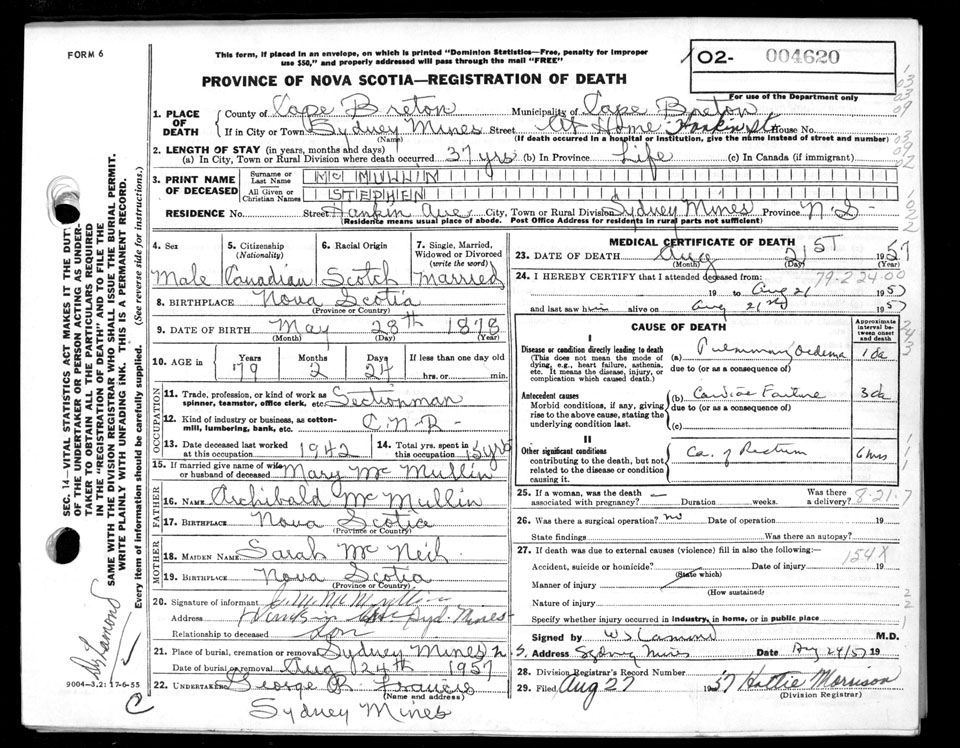 FORM 6
This form, if placed in an envelope, on which is printed "Dominion Statistics—Free, penalty for improper
use $50," and properly addressed will pass through the mail "FREE"
02- 004620
For use of the Department only
PROVINCE OF NOVA SCOTIA—REGISTRATION OF DEATH
1. PLACE OF DEATH
County of Cape Breton Municipality of Cape Breton
If in City or Town Sydney Mines Street At Home House No.
(Name) (If death occurred in a hospital or institution, give the name instead of street and number)
2. LENGTH OF STAY (in years, months and days)
(a) In City, Town or Rural Division where death occurred 37 yrs (b) In Province Life (c) In Canada (if immigrant)
3. PRINT NAME OF DECEASED
Surname or Last Name MC MULLIN
All Given or Christian Names STEPHEN
RESIDENCE No. Street Ave City, Town or Rural Division Sydney Mines Province N.S.
Residence means usual place of abode. Post Office Address for residents in rural parts not sufficient)
4. Sex Male
5. Citizenship (Nationality) Canadian
6. Racial Origin Scotch
7. Single, Married, Widowed or Divorced (write the word) Married
8. BIRTHPLACE Nova Scotia
(Province or Country)
9. DATE OF BIRTH May 28th 1878
(Month) (Day) (Year)
10. AGE in Years 79 Months 2 Days 24 If less than one day old hrs. or min.
OCCUPATION
11. Trade, profession, or kind of work as spinner, teamster, office clerk, etc. Sectionman
12. Kind of industry or business, as cotton-mill, lumbering, bank, etc. C.N.R.
13. Date deceased last worked at this occupation 1942
14. Total yrs. spent in this occupation 15 yrs
15. If married give name of wife or husband of deceased Mary Mc Mullin
FATHER
16. NAME Archibald Mc Mullin
17. BIRTHPLACE Nova Scotia
(Province or Country)
MOTHER
18. MAIDEN NAME Sarah Mc Neil
19. BIRTHPLACE Nova Scotia
(Province or Country)
20. Signature of informant
Address Syd. Mines
Relationship to deceased Son
21. Place of burial, cremation or removal Sydney Mines N.S.
Date of burial or removal Aug 24th 1957
22. UNDERTAKER George R. Francis
(Name and address)
Sydney Mines
MEDICAL CERTIFICATE OF DEATH
23. DATE OF DEATH Aug 21ST 1957
(Day) (Year)
79-2-24-00
24. I HEREBY CERTIFY that I attended deceased from:
19 to Aug 21 1957
and last saw him alive on Aug 21st 1957
CAUSE OF DEATH
Approximate interval between onset and death
I
Disease or condition directly leading to death
(This does not mean the mode of dying, e.g., heart failure, asthenia, etc. It means the disease, injury, or complication which caused death.)
(a) Pulmonary Oedema 1 da
due to (or as a consequence of)
Antecedent causes
Morbid conditions, if any, giving rise to the above cause, stating the underlying condition last.
(b) Cardiac Failure 3 da
due to (or as a consequence of)
(c)
II
Other significant conditions
contributing to the death, but not related to the disease or condition causing it.
Ca. of Rectum 6 mos
25. If a woman, was the death associated with pregnancy? — Duration weeks. Was there a delivery?
8-21-7
26. Was there a surgical operation? no Date of operation 19
State findings Was there an autopsy?
27. If death was due to external causes (violence) fill in also the following:—
154X
Accident, suicide or homicide? Date of injury 19
(State which)
Manner of injury
(How sustained)
Nature of injury
Specify whether injury occurred in industry, in home, or in public place
Signed by M.D.
Address Sydney Mines Date Aug 24/57 19
28. Division Registrar's Record Number
29. Filed Aug 27 1957 Hattie Morrison
(Division Registrar)
SEC. 14—VITAL STATISTICS ACT MAKES IT THE DUTY
OF THE UNDERTAKER OR PERSON ACTING AS UNDER-
TAKER TO OBTAIN ALL THE PARTICULARS REQUIRED
IN THE "REGISTRATION OF DEATH" AND TO FILE THE
SAME WITH THE DIVISION REGISTRAR WHO SHALL ISSUE THE BURIAL PERMIT.
WRITE PLAINLY WITH UNFADING INK. THIS IS A PERMANENT RECORD.
Every item of information should be carefully supplied. (See reverse side for instructions.)
9004-3.2: 17-6-55